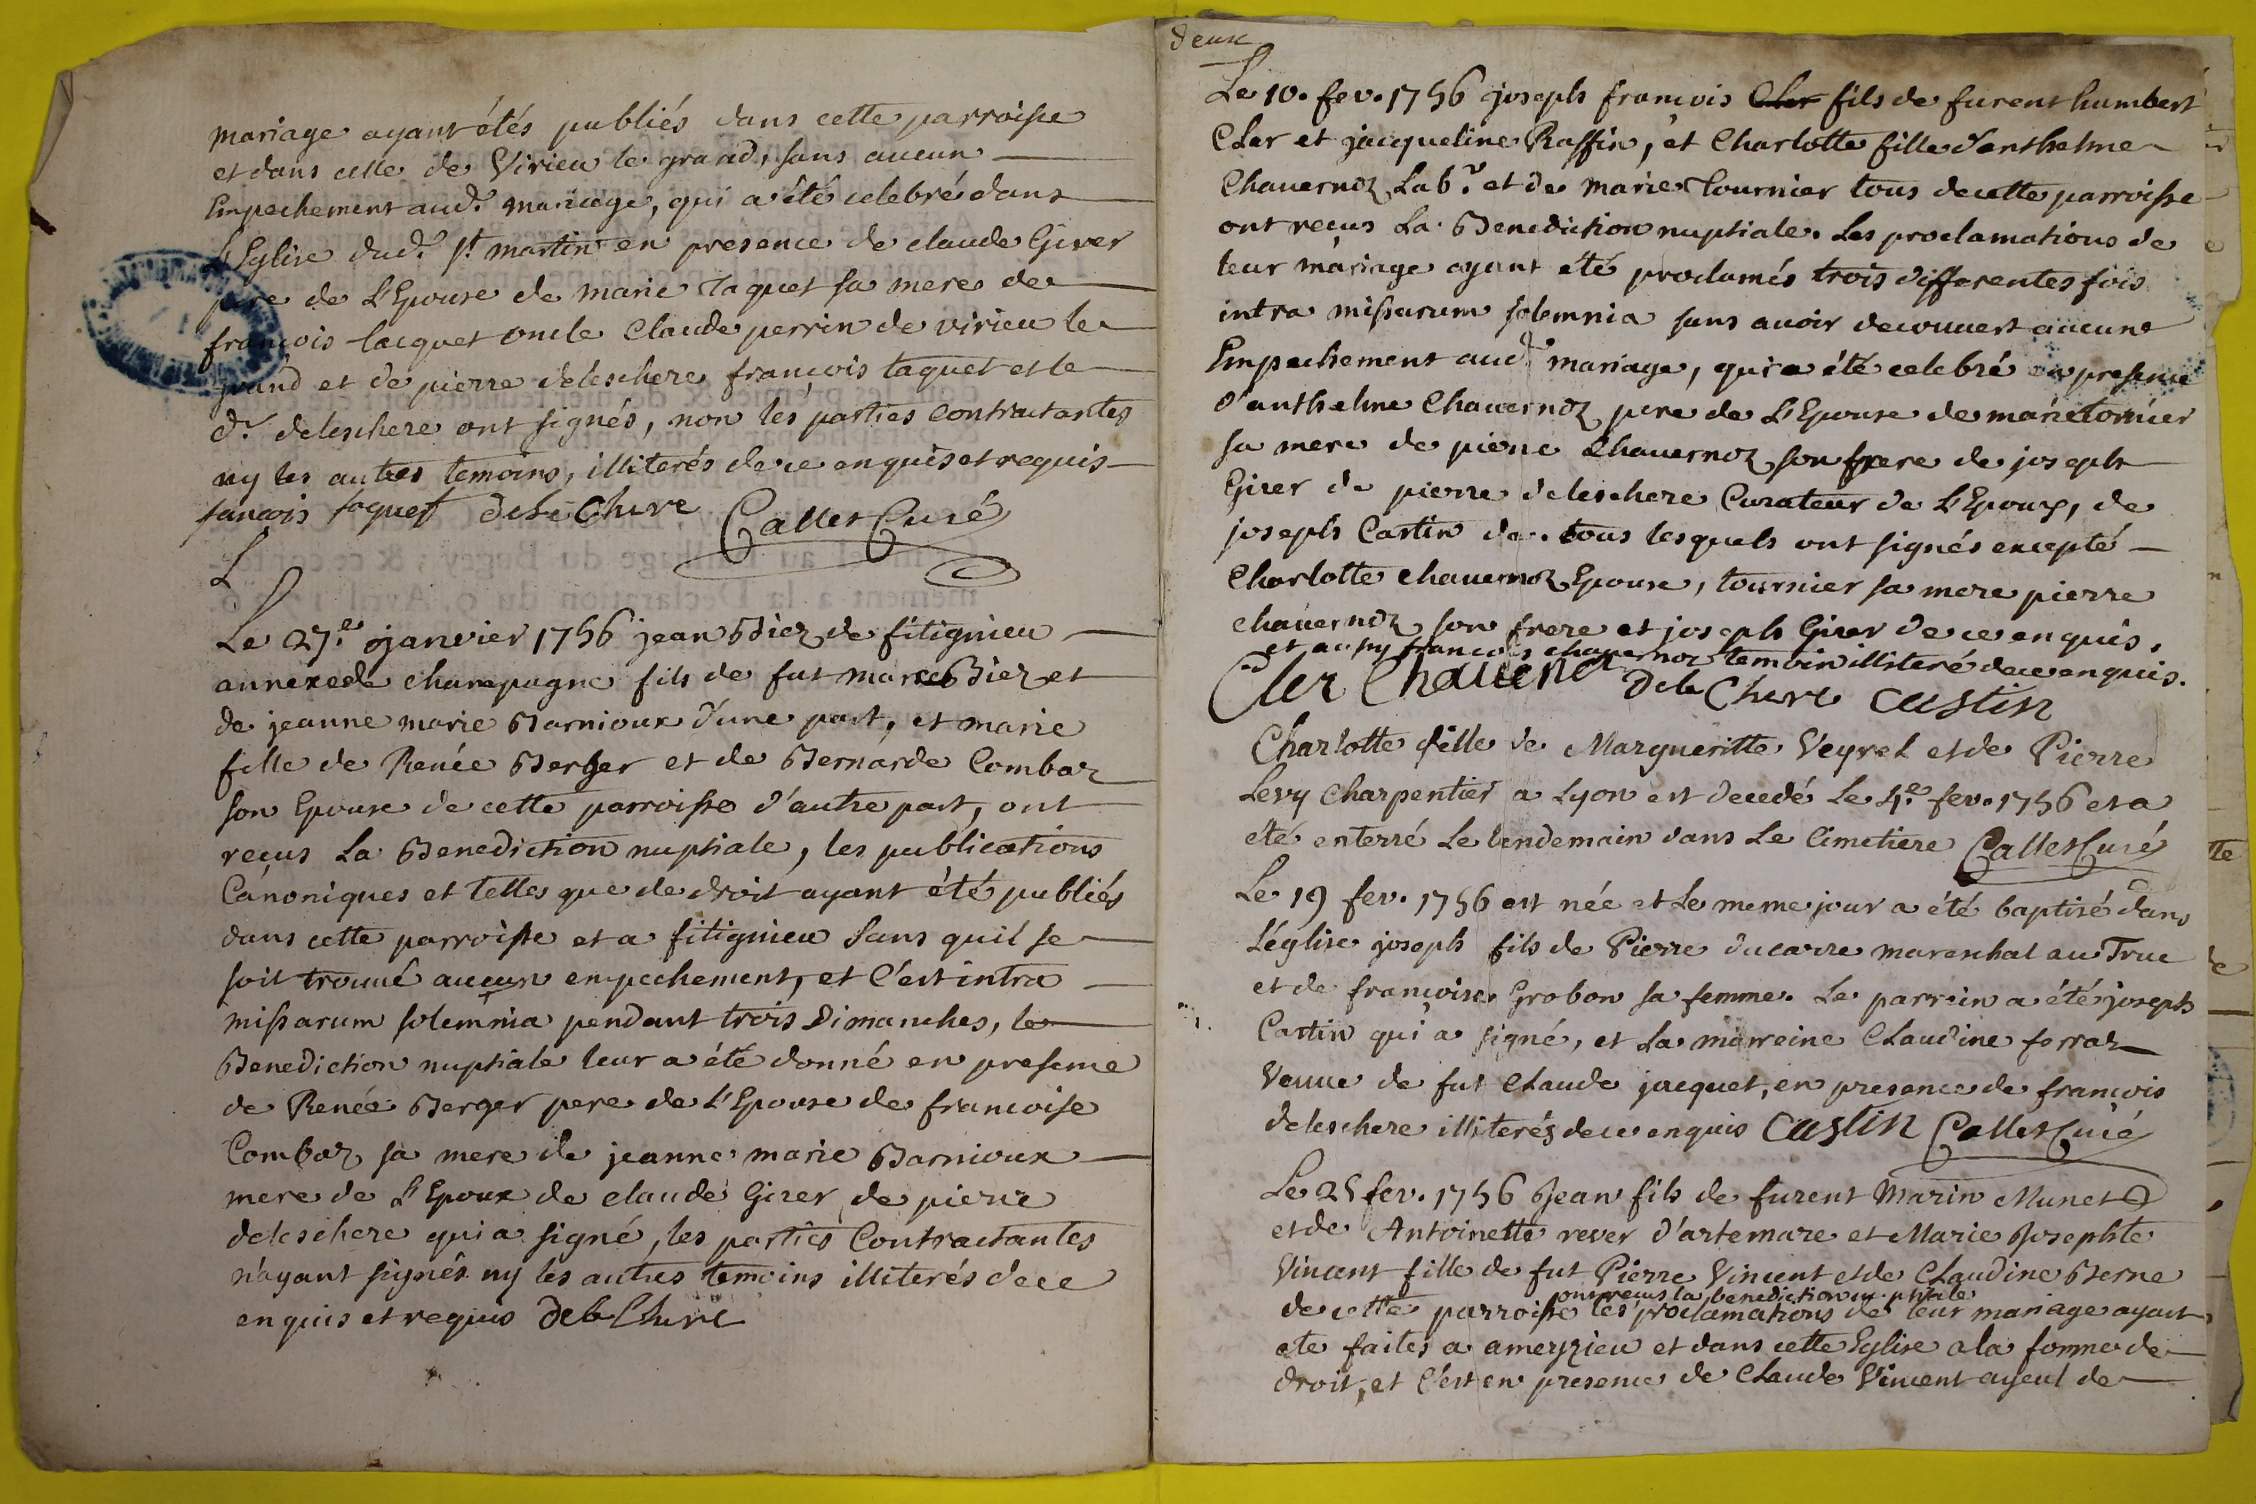 mariage ayant étés publiés dans cette parroisse
et dans celle de Virieu le grand, sans aucun
Empechement aud.t mariage, qui a été celebré dans
L'Eglise dud.t st martin en presence de claude Girer
pere de L'Epouse de marie taquet sa mere de
françois tacquet oncle Claude perrin de virieu le
grand et de pierre deleschere françois taquet et le
d.t deleschere ont signés, non les parties contractantes
ny les autres temoins, illiterés de ce enquis et requis
fancois taquet delècChere Callet Curé
L
Le 27.e janvier 1756 jean Biez de fitignieu
annexe de champagne fils de fut marc Biez et
de jeanne marie Barnioux d'une part, et marie
fille de Renée Berger et de Bernarde Combaz
son Epouse de cette parroisse d'autre part, ont
reçus La Benediction nuptiale, les publications
Canoniques et telles que de droit ayant été publiés
dans cette parroisse et a fitignieu sans qu'il se
soit trouvé aucun empechement, et C'est intra
missarum solemnia pendant trois Dimanches, la
Benediction nuptiale leur a été donné en presence
de Renée Berger pere de L'Epouse de francoise
Combaz sa mere de jeanne marie Barnioux
mere de L'Epoux de claude Girer de pierre
deleschere qui a signé, les parties Contractantes
n'ayant signés ny les autres temoins illiterés de ce
enquis et requis DeleChere
deux
Le 10. fev. 1756 joseph françois Cler fils de furent humbert
Cler et jacqueline Raffin, et Charlotte fille d'anthelme
Chavernoz Lab.r et de marie tournier tous de cette parroisse
ont reçus La Benediction nuptiale. Les proclamations de
leur mariage ayant été proclamés trois differentes fois
intra missarum solemnia sans avoir decouvert aucune
Empechement aud.t mariage, qui a été celebré en presence
d'anthelme Chavernoz pere de L'Epouse de marie tornier
sa mere de pierre Chavernoz son frere de joseph
Girer de pierre deleschere Curateur de L'Epoux, de
joseph Castin de. tous lesquels ont signés excepté
Charlotte chavernoz Epouse, tournier sa mere pierre
chavernoz son frere et joseph Girer de ce enquis,
et aussy francois chavernoz temoin illiteré de ce enquis.
Cler Chavernoz DeleChere castin
Charlotte fille de Margueritte Veyret et de Pierre
Levy Charpentier a Lyon est decedé Le 4.e fev. 1756 et a
eté enterré Le lendemain dans Le Cimetiere Callet Curé
Le 19 fev. 1756 est née et Le meme jour a été baptisé dans
L'église joseph fils de Pierre ducarre mareschal au Truc
et de françoise Grobon sa femme. Le parrein a été joseph
Castin qui a signé, et La marreine Claudine ferraz
Veuve de fut Claude jacquet, en presence de françois
deleschere illiterés de ce enquis castin Callet Curé
Le 25 fev. 1756 Jean fils de furent Marin Munet
et de Antoinette rever d'artemare et Marie Josephte
Vincent fille de fut Pierre Vincent et de Claudine Berne
ont reçus la benediction nuptiale
de cette parroisse les proclamations de leur mariage ayant
ete faites a ameyzieu et dans cette Eglise a la forme de
droit, et C'est en presence de Claude Vincent ayeul de